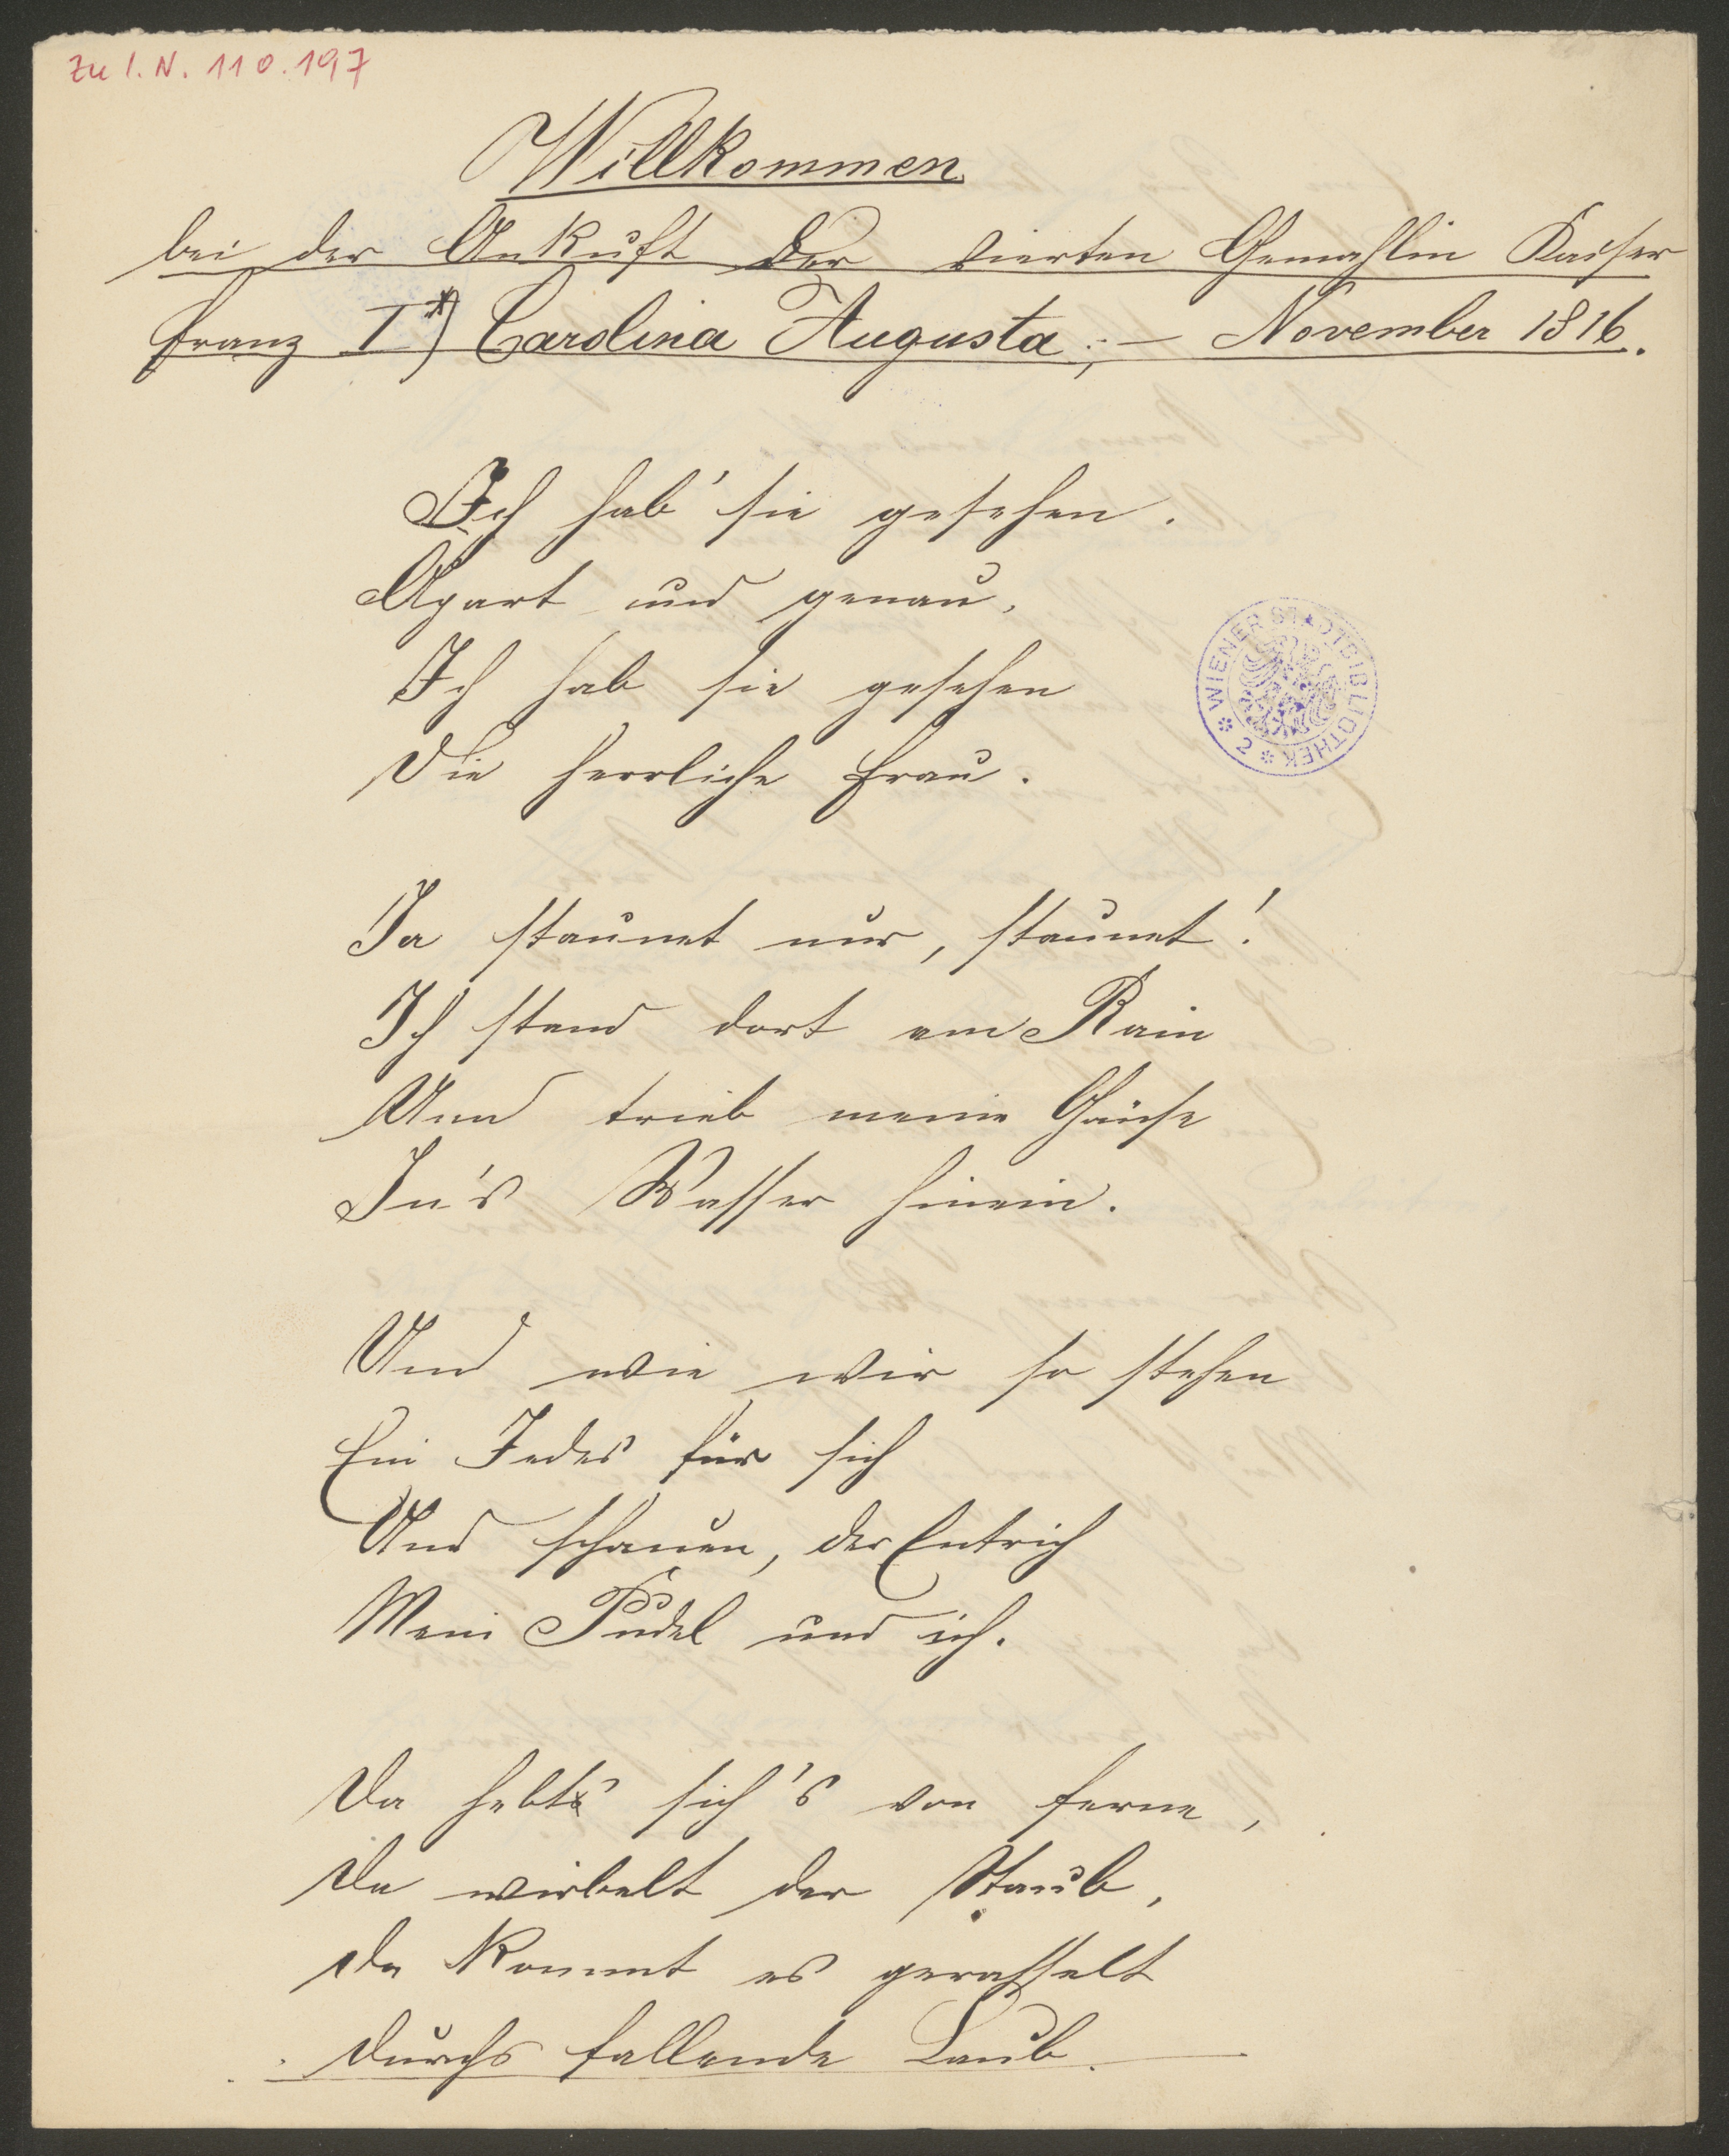 Zu I. N. 110.197
Willkommen
bei der Ankuft der vierten Gemahlin Kaiser
Franz I*) Carolina Augusta; – November 1816.
Ich hab' sie gesehen.
Apart und genau,
Ich hab sie gesehen
Die herrliche Frau.
WIENER STADTBIBLIOTHEK * 2 *
Ja staunet nur, staunet!
Ich stand dort am Rain
Und trieb meine Gänse
In's Wasser hinein.
Und wie wir so stehen
Ein Jedes für sich
Und schauen, der Entrich
Mein Pudel und ich.
Da hebt sich's von ferne,
Da wirbelt der Staub,
Da kommt es gerasselt
Durchs fallende Laub.